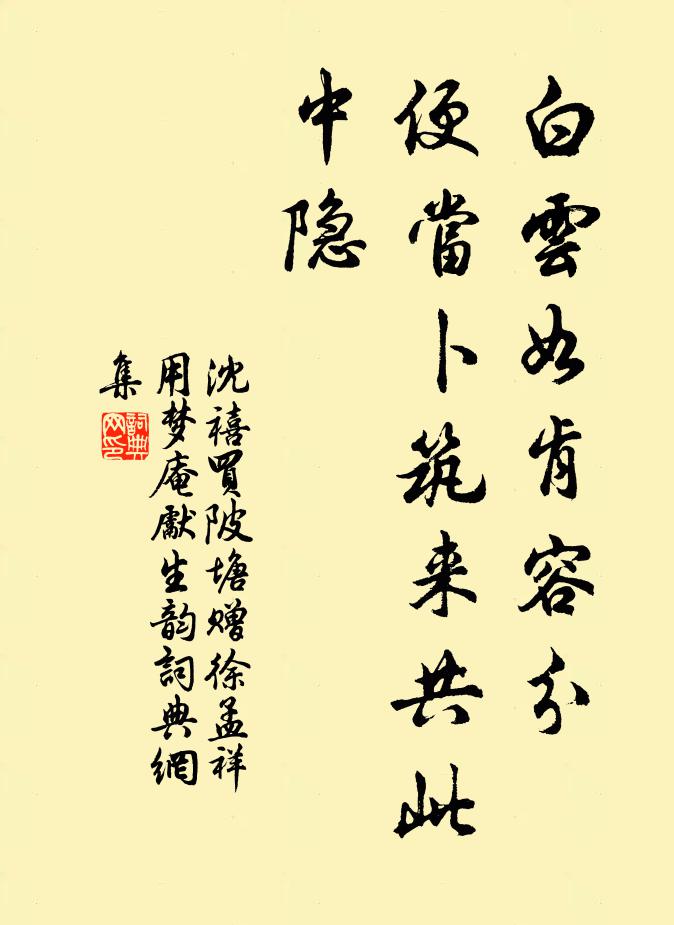 白雲如肯容分
便當卜筑来共此
中隐
沈禧買陂塘赠徐孟祥
用梦庵獻生韵詞典網
集
詞典
网印